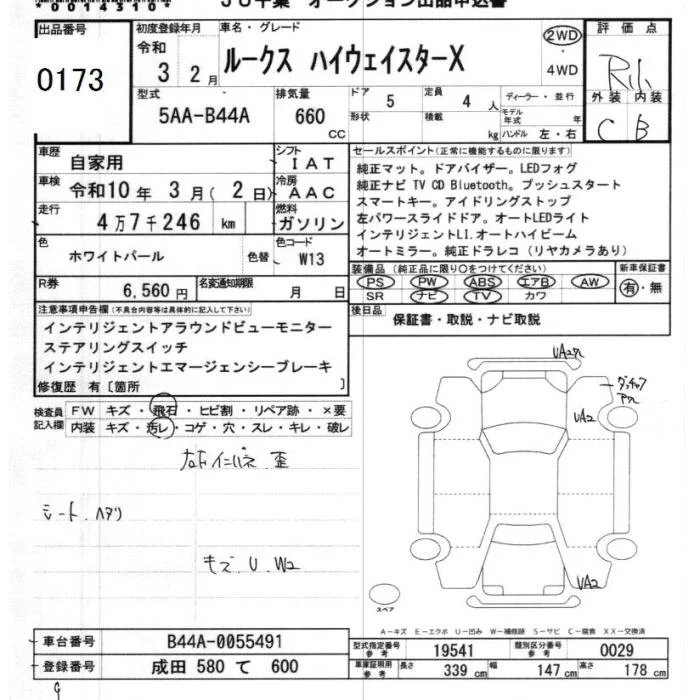 0014310
JU千葉 オークション出品申込書
出品番号
0173
初度登録年月
令和
3 2月
車名・グレード
ルークス ハイウェイスターX
2WD
・
4WD
評価点
外装 内装
C B
型式
5AA-B44A
排気量
660
CC
ドア
5
定員
4 人
ディーラー・並行
形状
積載
kg
モデル年式 年
ハンドル 左・右
車歴
自家用
シフト
IAT
車検
令和10年 3月( 2日)
冷房
AAC
走行
4万7千246 km
燃料
ガソリン
色
ホワイトパール
色替
色コード
W13
R券
6,560円
名変通知期限
月 日
セールスポイント(正常に機能するものに限ります)
純正マット。ドアバイザー。LEDフォグ
純正ナビ TV CD Bluetooth。プッシュスタート
スマートキー。アイドリングストップ
左パワースライドドア。オートLEDライト
インテリジェントLI.オートハイビーム
オートミラー。純正ドラレコ(リヤカメラあり)
装備品(純正品に限り○をつけてください)
PS PW ABS エアB AW
SR ナビ TV カワ
新車保証書
有・無
後日品
保証書・取説・ナビ取説
注意事項申告欄(不具合内容等は具体的に記入して下さい)
インテリジェントアラウンドビューモニター
ステアリングスイッチ
インテリジェントエマージェンシーブレーキ
修復歴 有〔箇所 〕
検査員記入欄
FW キズ・飛石・ヒビ割・リペア跡・×要
内装 キズ・汚レ・コゲ・穴・スレ・キレ・破レ
シート.ヘタリ
キズ.U.W2
UA2
UA2
スペア
A-キズ E-エクボ U-凹み W-補修跡 S-サビ C-腐食 XX-交換済
車台番号
B44A-0055491
登録番号
成田 580 て 600
型式指定番号
参考
19541
類別区分番号
参考
0029
車庫証明用
参考
長さ 339 cm 幅 147 cm 高さ 178 cm